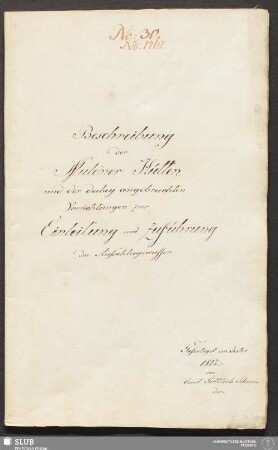 No: 30.
No: 1761
Beschreibung
der
Muldner Hütten
und der dabey angebrachten
Vorrichtungen zur
Einleitung und Zuführung
der Aufschlagewasser
Gefertiget im Jahr
1812
von
Carl Gottlieb
SLUB
Wir führen Wissen.